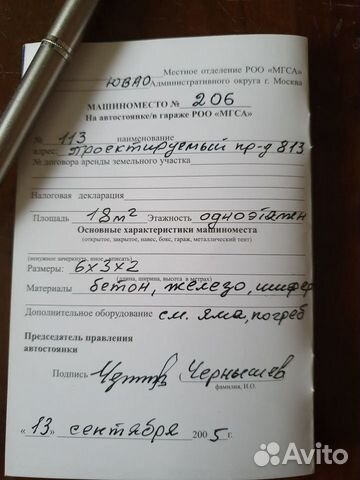 ЮВАО Местное отделение РОО «МГСА»
Административного округа г. Москва
МАШИНОМЕСТО № 206
На автостоянке/в гараже РОО «МГСА»
№ 113 наименование
адрес: Проектируемый пр-д 813
№ договора аренды земельного участка
Налоговая декларация
Площадь 18 м² Этажность одноэтажн
Основные характеристики машиноместа
(открытое, закрытое, навес, бокс, гараж, металлический тент)
(ненужное зачеркнуть, иное - вписать)
Размеры: 6х3х2
(длина, ширина, высота в метрах)
Материалы бетон, железо, шифер
Дополнительное оборудование см. яма, погреб
Председатель правления
автостоянки
Подпись Чернышев
фамилия, И.О.
«13» сентября 2005 г.
Avito